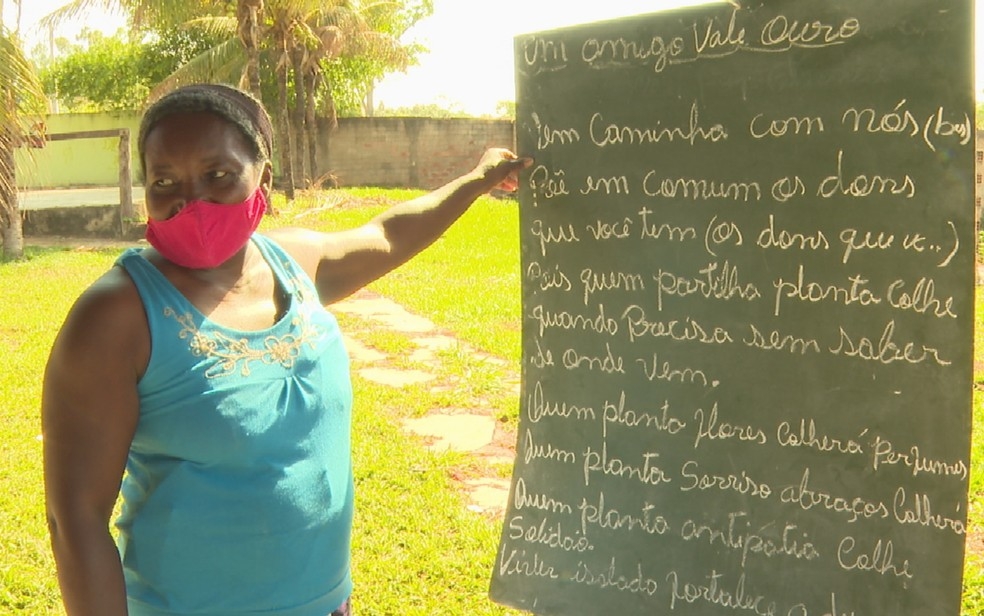 Um amigo Vale Ouro
Vem Caminha com nós (bis)
Põe em comum os dons
que você tem (os dons que vc..)
Pois quem partilha planta Colhe
quando Precisa sem saber
de onde vem.
Quem planta flores Colherá Perfumes
Quem planta Sorriso abraços Colherá
Quem planta antipatia Colhe
Solidão.
Viver isolado fortalece